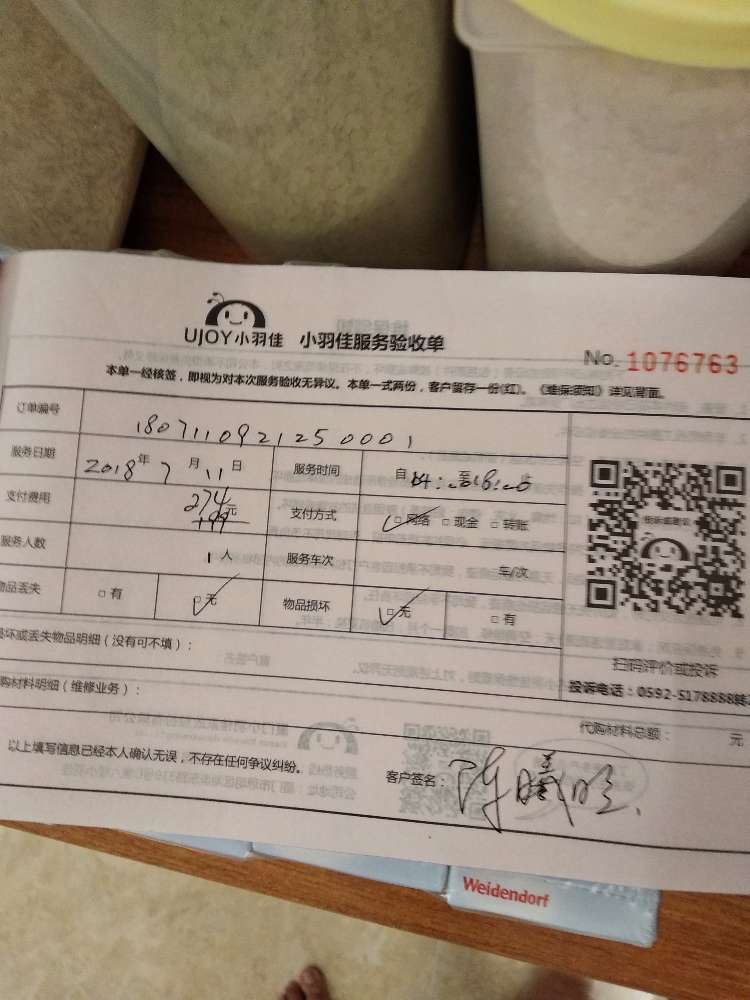 UJOY小羽佳 小羽佳服务验收单
No. 1076763
本单一经核签，即视为对本次服务验收无异议。本单一式两份，客户暂存一份(红)。《维保须知》详见背面。
订单编号 180711092125 0001
服务日期 2018年 7月 11日 服务时间 自 至
支付费用 274元 支付方式 □网络 □现金 □转账
199
服务人数 1人 服务车次 车/次
物品丢失 □有 □无 物品损坏 □无 □有
损坏或丢失物品明细（没有可不填）：
扫码评价或投诉
投诉电话：0592-5178888转
购材料明细（维修业务）：
代购材料总额： 元
以上填写信息已经本人确认无误，不存在任何争议纠纷。
客户签名：陈曦
Weidendorf